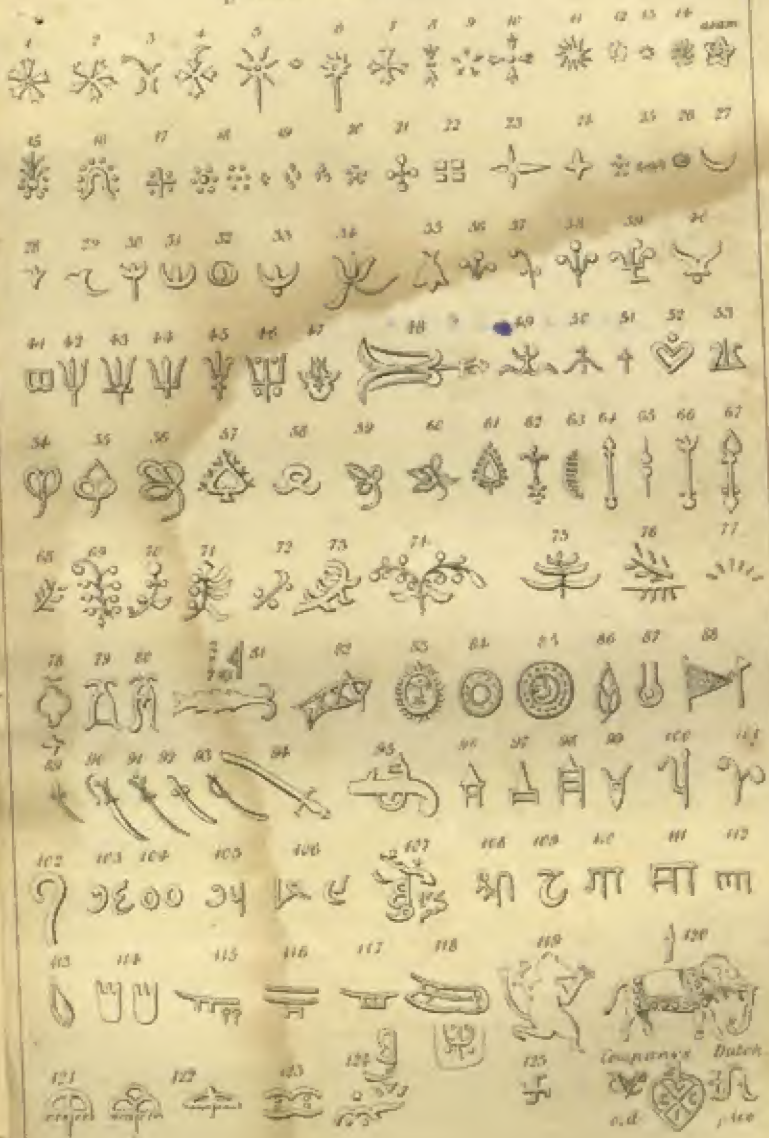 1 2 3 4 5 6 7 8 9 10 11 12 13 14 asam
15 16 17 18 19 20 21 22 23 24 25 26 27
28 29 30 31 32 33 34 35 36 37 38 39 40
41 42 43 44 45 46 47 48 49 50 51 52 53
54 55 56 57 58 59 60 61 62 63 64 65 66 67
68 69 70 71 72 73 74 75 76 77
78 79 80 81 82 83 84 85 86 87 88
89 90 91 92 93 94 95 96 97 98 99 100 101
102 103 104 105 106 107 108 109 110 111 112
१६०० १५ श्री ट गा सा
113 114 115 116 117 118 119 120
121 122 123 124 125 Company's Dutch
old pice